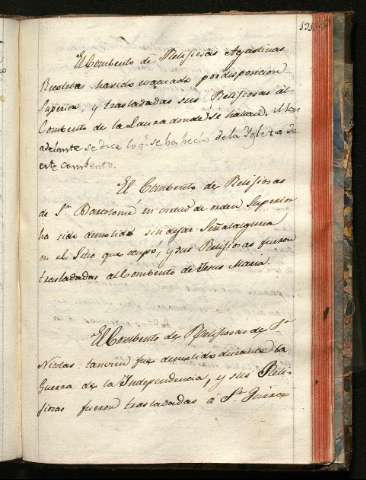 El Combento de Relijiosas Agustinas
Recoletas ha sido evacuado por disposicion
Superior y trasladadas sus Relijiosas al
Combento de la Laura donde se hallan, Mas
adelante se dira lo q.e se ha hecho de la Iglesia de
este combento.
El Combento de Relijiosas
de S.n Bartolomé en virtud de orden Superior
ha sido demolido sin dejar Señal alguna
en el Sitio que ocupo, y sus Relijiosas fueron
trasladadas al Combento de Jesus Maria.
El Combento de Relijiosas de S.n
Nicolas tanvien fue demolido durante la
Guerra de la Independencia, y sus Reli-
jiosas fueron trasladadas a S.n